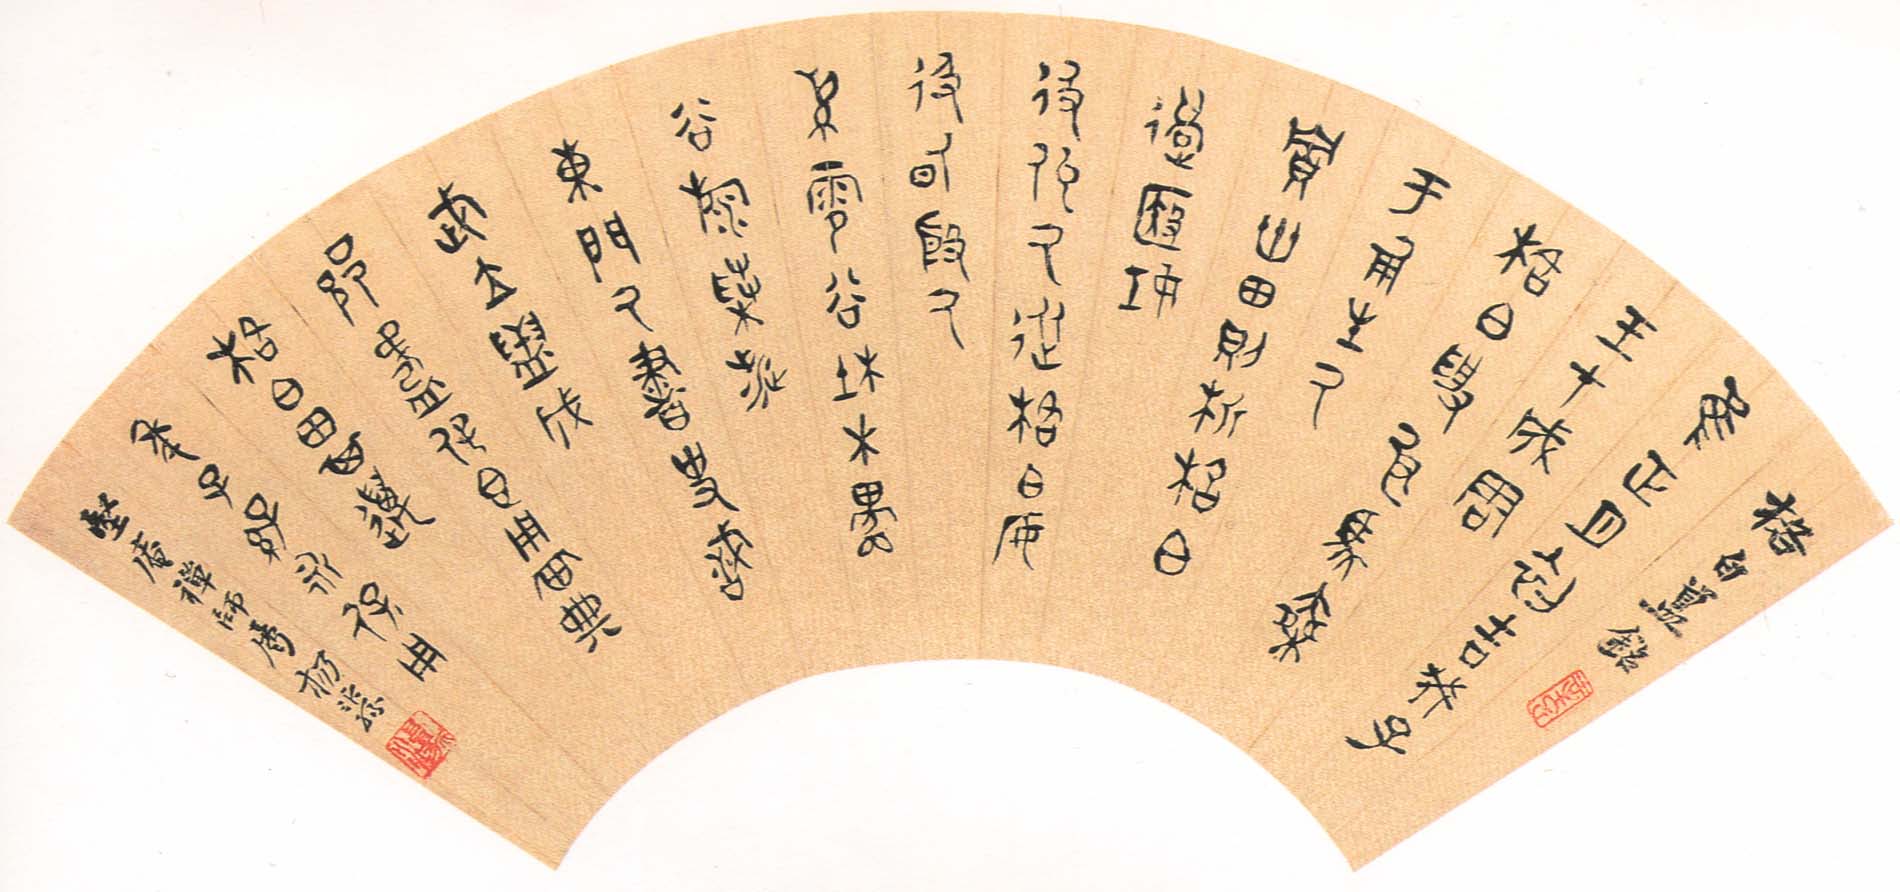 格白簋銘
隹正月初吉癸子
王才成周
格白良馬乘
于倗生氒
貯卅田則析格白
還殹妊
彶仡氒從格白安
彶甸殷氒
雩谷杜木
谷桑涉
東門氒書史戠
武立盟成
鑄保簋用典
格白田其邁
年子孫永保用
堅庵禪師屬楊沂孫